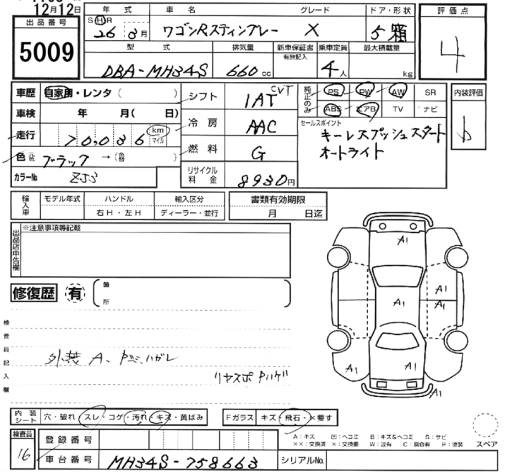 12月12日
出品番号
5009
年式 車名 グレード ドア・形状 評価点
S H R 26年 3月 ワゴンRスティングレー X 5 箱 4
型式 排気量 新車保証書 有無記入 乗車定員 最大積載量
DBA-MH34S 660cc 4人 kg
車歴 自家用・レンタ( )
車検 年 月( 日)
走行 70,036 km マイル
色 ブラック→(色替 )
カラーNo. ZJ3
シフト 1AT CVT
冷房 AAC
燃料 G
リサイクル料金 8930円
純正のみ PS PW AW SR
ABS エアB TV ナビ
内装評価
b
セールスポイント
キーレスプッシュスタート
オートライト
輸入車 モデル年式 ハンドル 輸入区分
右H・左H ディーラー・並行
書類有効期限
月 日迄
出品店申告欄
※注意事項等記載
修復歴 有 箇所
検査員記入欄
外装 A、
リヤスポ Pハゲ
A1
A1
A1 A1
A1
A1
A1
内装シート 穴・破れ スレ・コゲ・汚れ キズ・黄ばみ
Fガラス キズ・飛石・×要す
検査員
16
登録番号
車台番号 MH34S-758663
シリアルNo.
スペア